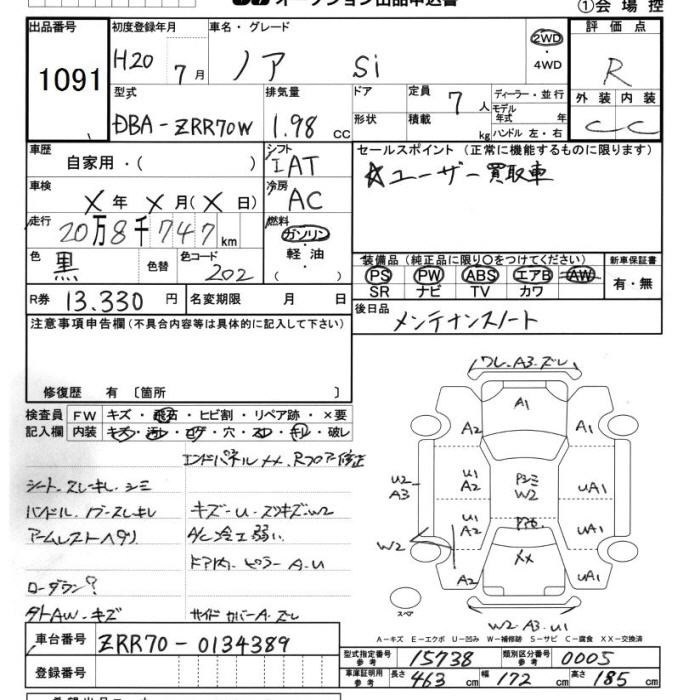 オークション出品申込書
①会場控
出品番号 初度登録年月 車名・グレード 評価点
1091 H20 7月 ノア Si 2WD ・ 4WD R
型式 排気量 ドア 定員 7人 ディーラー・並行 外装 内装
DBA-ZRR70W 1.98 cc 形状 積載 kg モデル年式 年 ハンドル 左・右 C C
車歴 シフト セールスポイント (正常に機能するものに限ります)
自家用・( ) IAT ☆ユーザー買取車
車検 冷房
X年 X月(X日) AC
走行 燃料
20万8千747km ガソリン・軽油・( )
色 黒 色替 色コード 202
装備品 (純正品に限り○をつけてください) 新車保証書
PS PW ABS エアB AW 有・無
SR ナビ TV カワ
R券 13.330円 名変期限 月 日
後日品 メンテナンスノート
注意事項申告欄 (不具合内容等は具体的に記入して下さい)
修復歴 有 〔箇所 〕
検査員 FW キズ・飛石・ヒビ割・リペア跡・×要
記入欄 内装 キズ・汚レ・コゲ・穴・スレ・キレ・破レ
エンドパネルXX、Rフロアー修正
シート、スレキレ、シミ
ハンドル、ノブ-スレキレ キズ-U-スリキズ-W2
アームレストヘタリ A/C冷エ弱い
ドア内、ピラーA-U
ローダウン?
タトAW-キズ サイドカバーA-ズレ
ワレ、A3-ズレ
A1
A2 A1
U2 A3 U1 A2 W2 UA1
U1 A2 UA1
W2
XX
A2 UA1
スペア
W2-A3-U1
A-キズ E-エクボ U-凹み W-補修跡 S-サビ C-腐食 XX-交換済
車台番号 ZRR70-0134389
登録番号
型式指定番号 参考 15738 類別区分番号 参考 0005
車庫証明用 参考 長さ 463 cm 幅 172 cm 高さ 185 cm